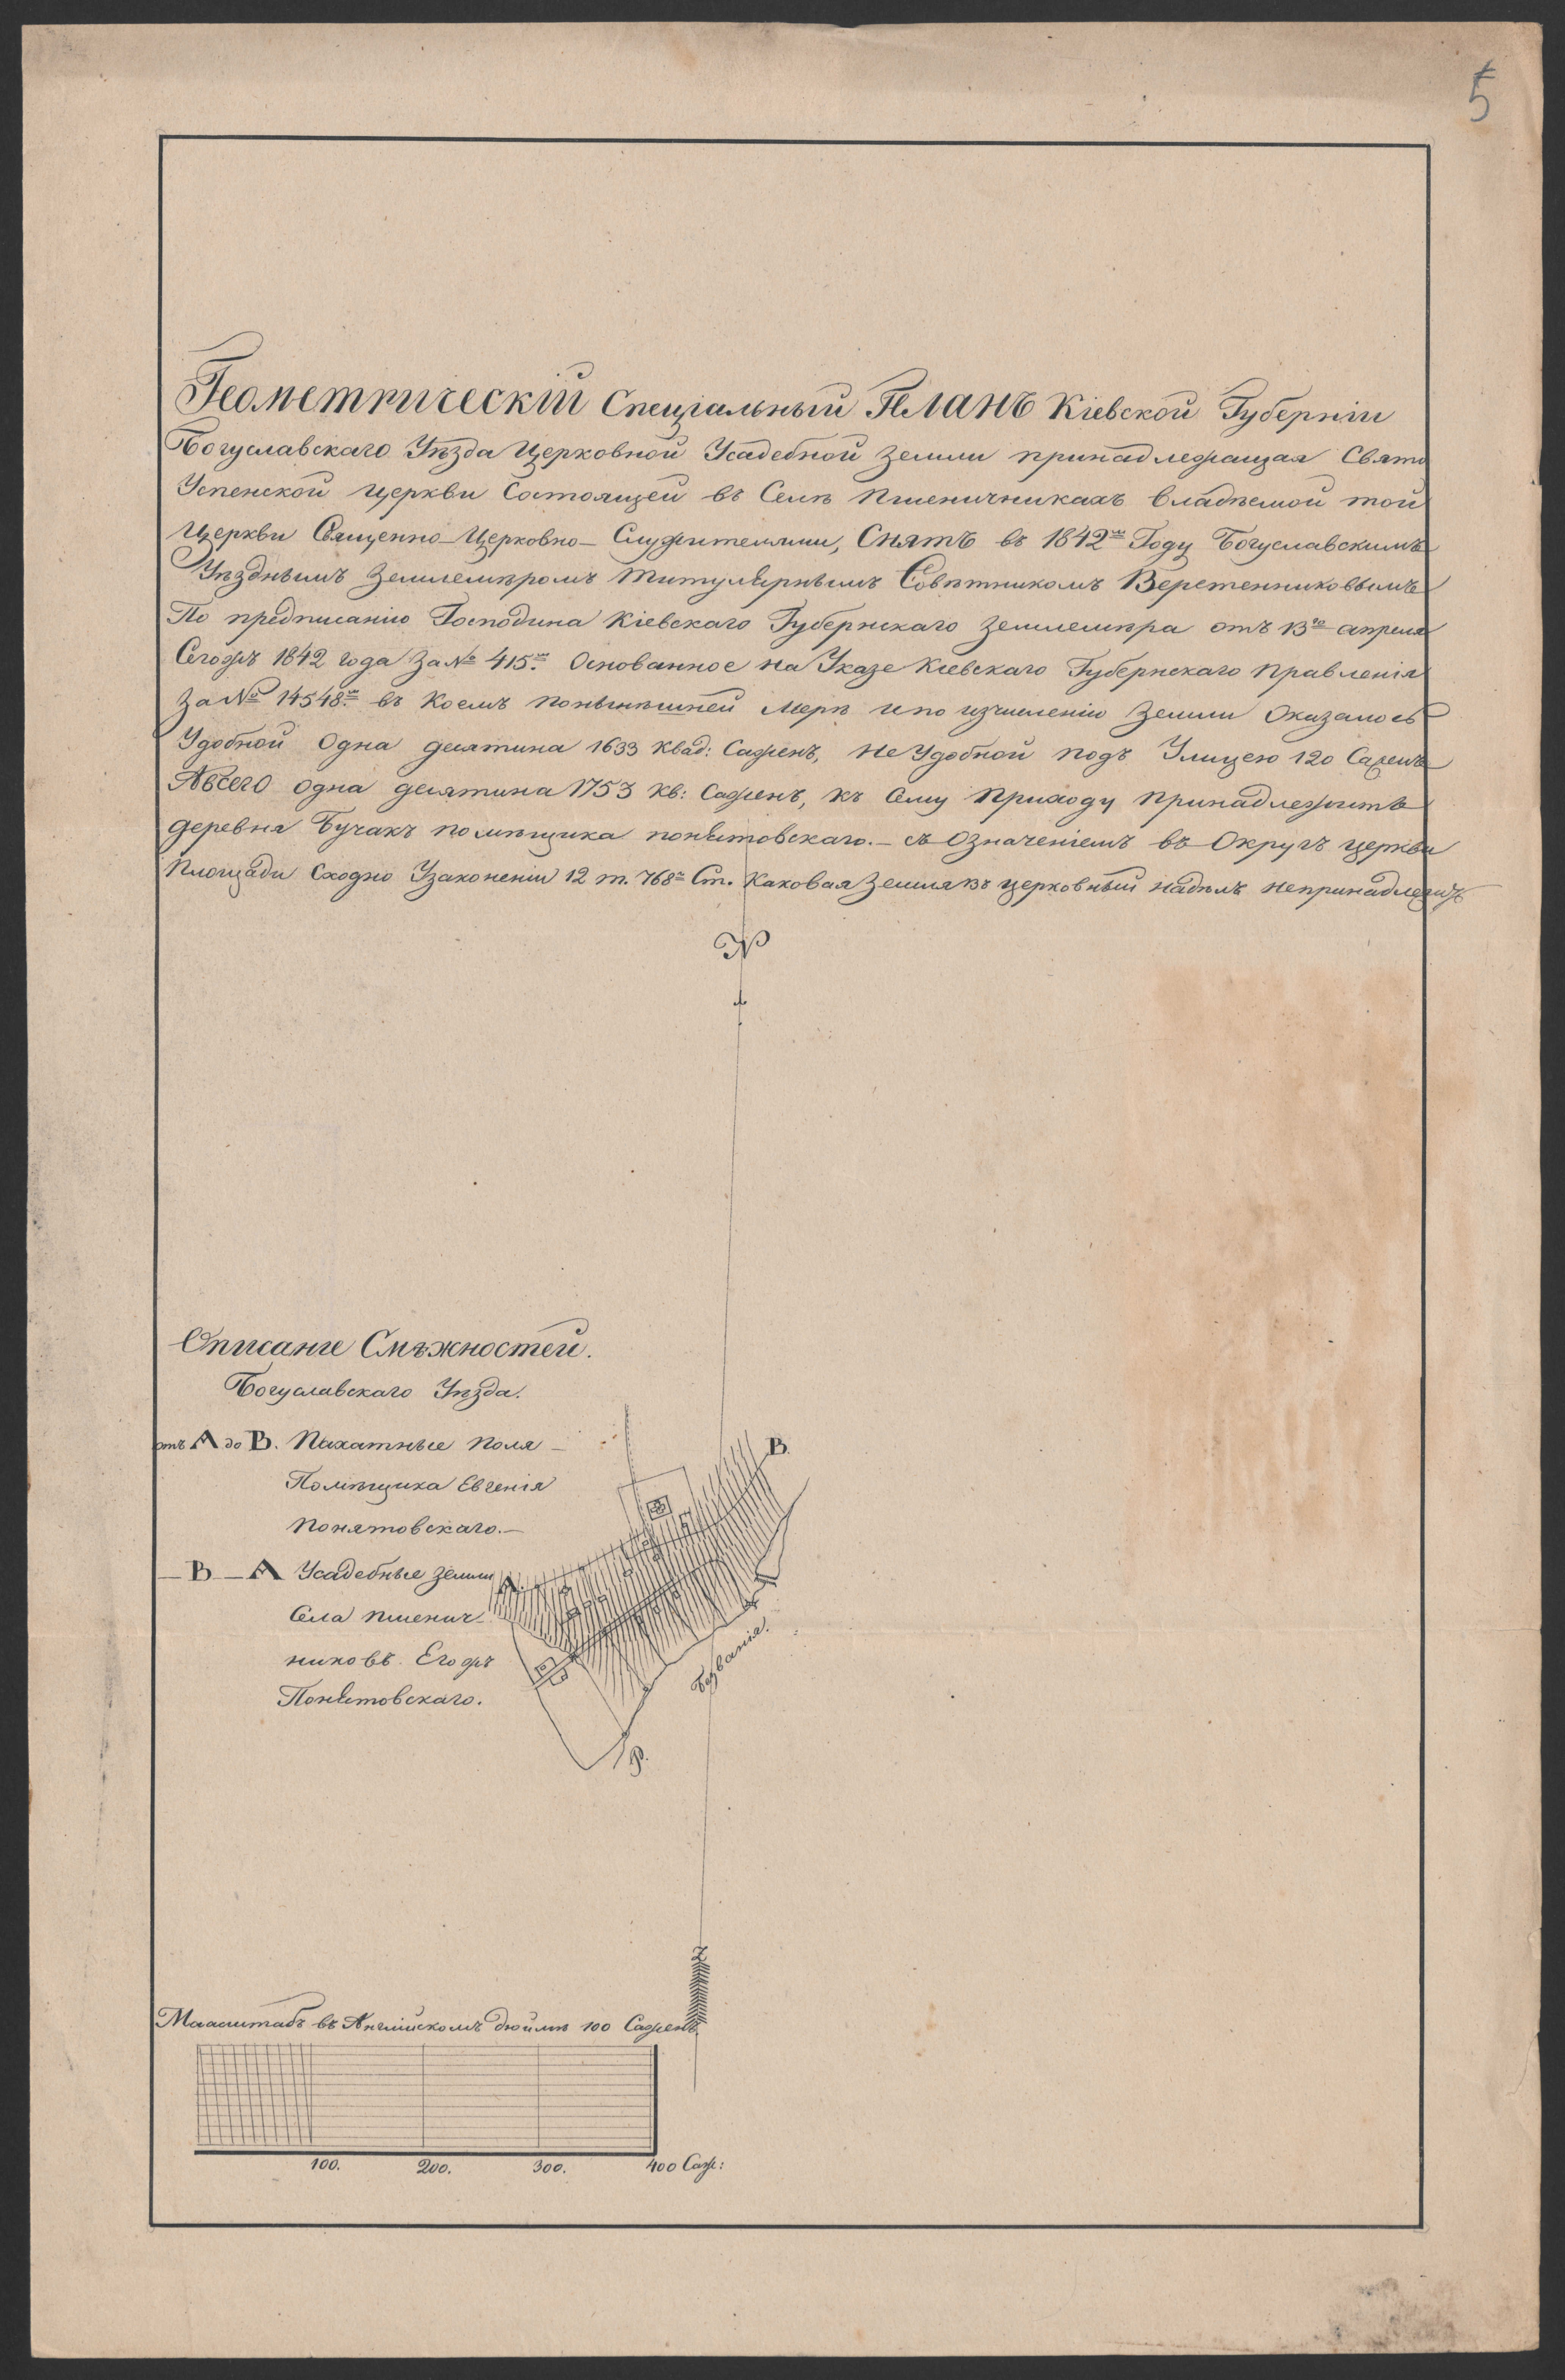 5
Геометрический Специальный Планъ Кіевской Губерніи
Богуславскаго Уѣзда Церковной Усадебной Земли принадлежащая Свято
Успенской Церкви Состоящей въ Селѣ Пшеничникахъ владѣемой той
Церкви Священно-Церковно-Служителями, Снятъ въ 1842м Году Богуславскимъ
Уѣзднымъ Землемѣромъ Титулярнымъ Совѣтникомъ Веретенниковымъ
По предписанію Господина Кіевскаго Губернскаго Землемѣра отъ 13го апреля
Сегожъ 1842 года За № 415м Основанное на Указе Кіевскаго Губернскаго Правленія
За № 14548м въ Коемъ понынѣшней Мерѣ и по изчисленію Земли Оказалось
Удобной Одна десятина 1633 квад: Саженъ, не Удобной подъ Улицею 120 Саженъ
А всего одна десятина 1753 кв: Саженъ, къ Сему Приходу принадлежитъ
деревня Бучакъ помѣщика понятовскаго.- съ Означеніемъ въ Округъ церкви
Площади Сходно Узаконении 12 т. 768й Ст. Каковая Земля въ церковный надѣлъ непринадлежитъ
N
Описаніе Смѣжностей.
Богуславскаго Уѣзда.
отъ А до В. Пахатные Поля -
Помѣщика Евгенія
Понятовскаго.-
- В - А Усадебные земли
Села Пшенич-
никовъ. Егожъ
Понятовскаго.
А.
В.
Р.
Безванія.
Z
Маасштабъ въ Англійскомъ дюймѣ 100 Саженъ.
100. 200. 300. 400 Саж: